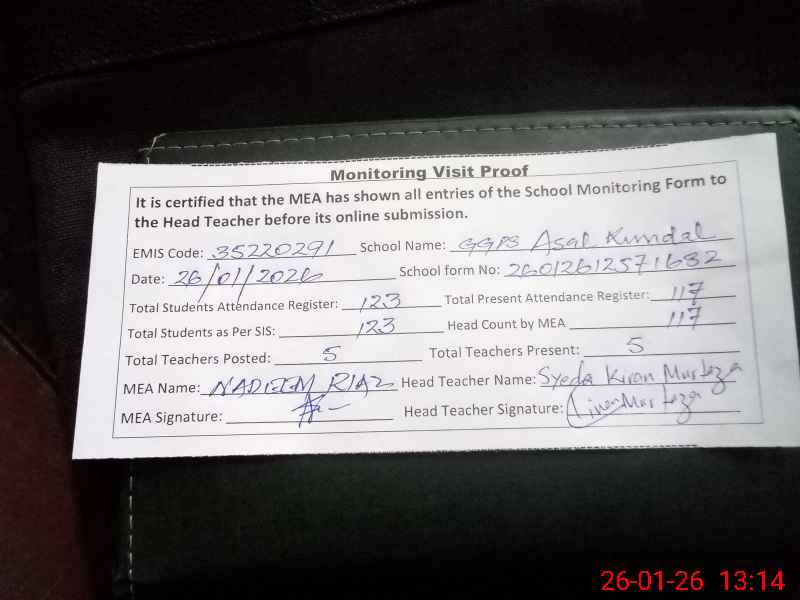 Monitoring Visit Proof
It is certified that the MEA has shown all entries of the School Monitoring Form to
the Head Teacher before its online submission.
EMIS Code: 35220291 School Name: GGPS Asal Kumdal
Date: 26/01/2026 School form No: 26012612571632
Total Students Attendance Register: 123 Total Present Attendance Register: 117
Total Students as Per SIS: 123 Head Count by MEA 117
Total Teachers Posted: 5 Total Teachers Present: 5
MEA Name: NADEEM RIAZ Head Teacher Name: Syeda Kiran Murteza
MEA Signature: Head Teacher Signature: Murteza
26-01-26 13:14